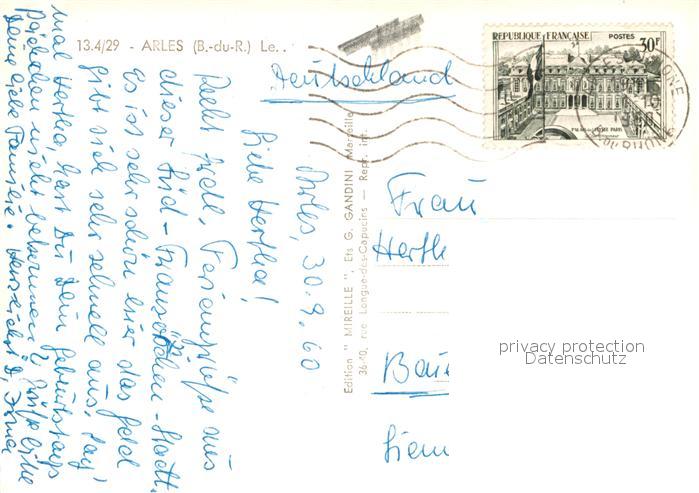 13.4/29 - ARLES (B.-du-R.) Le..
Arles, 30.9.60
Liebe Hertha!
Recht herzl. Feriengrüsse aus
dieser Süd-Französischen-Stadt.
Es ist sehr schön hier das Geld
gibt sich sehr schnell aus. Sag'
mal Hertha, hast Du Dein Geburtstags
Päckchen nicht bekommen? Grüsse bitte
Deine liebe Familie. Herzlichst D. Irma
Edition " MIREILLE ", Ets G. GANDINI, Marseille
36-40, rue Longue-des-Capucins — Repr. int.
Deutschland
REPUBLIQUE FRANÇAISE POSTES 30F
PALAIS DE L'ELYSEE PARIS
RHONE
10
1960
Frau
Herth
Bau
Siem
privacy protection
Datenschutz